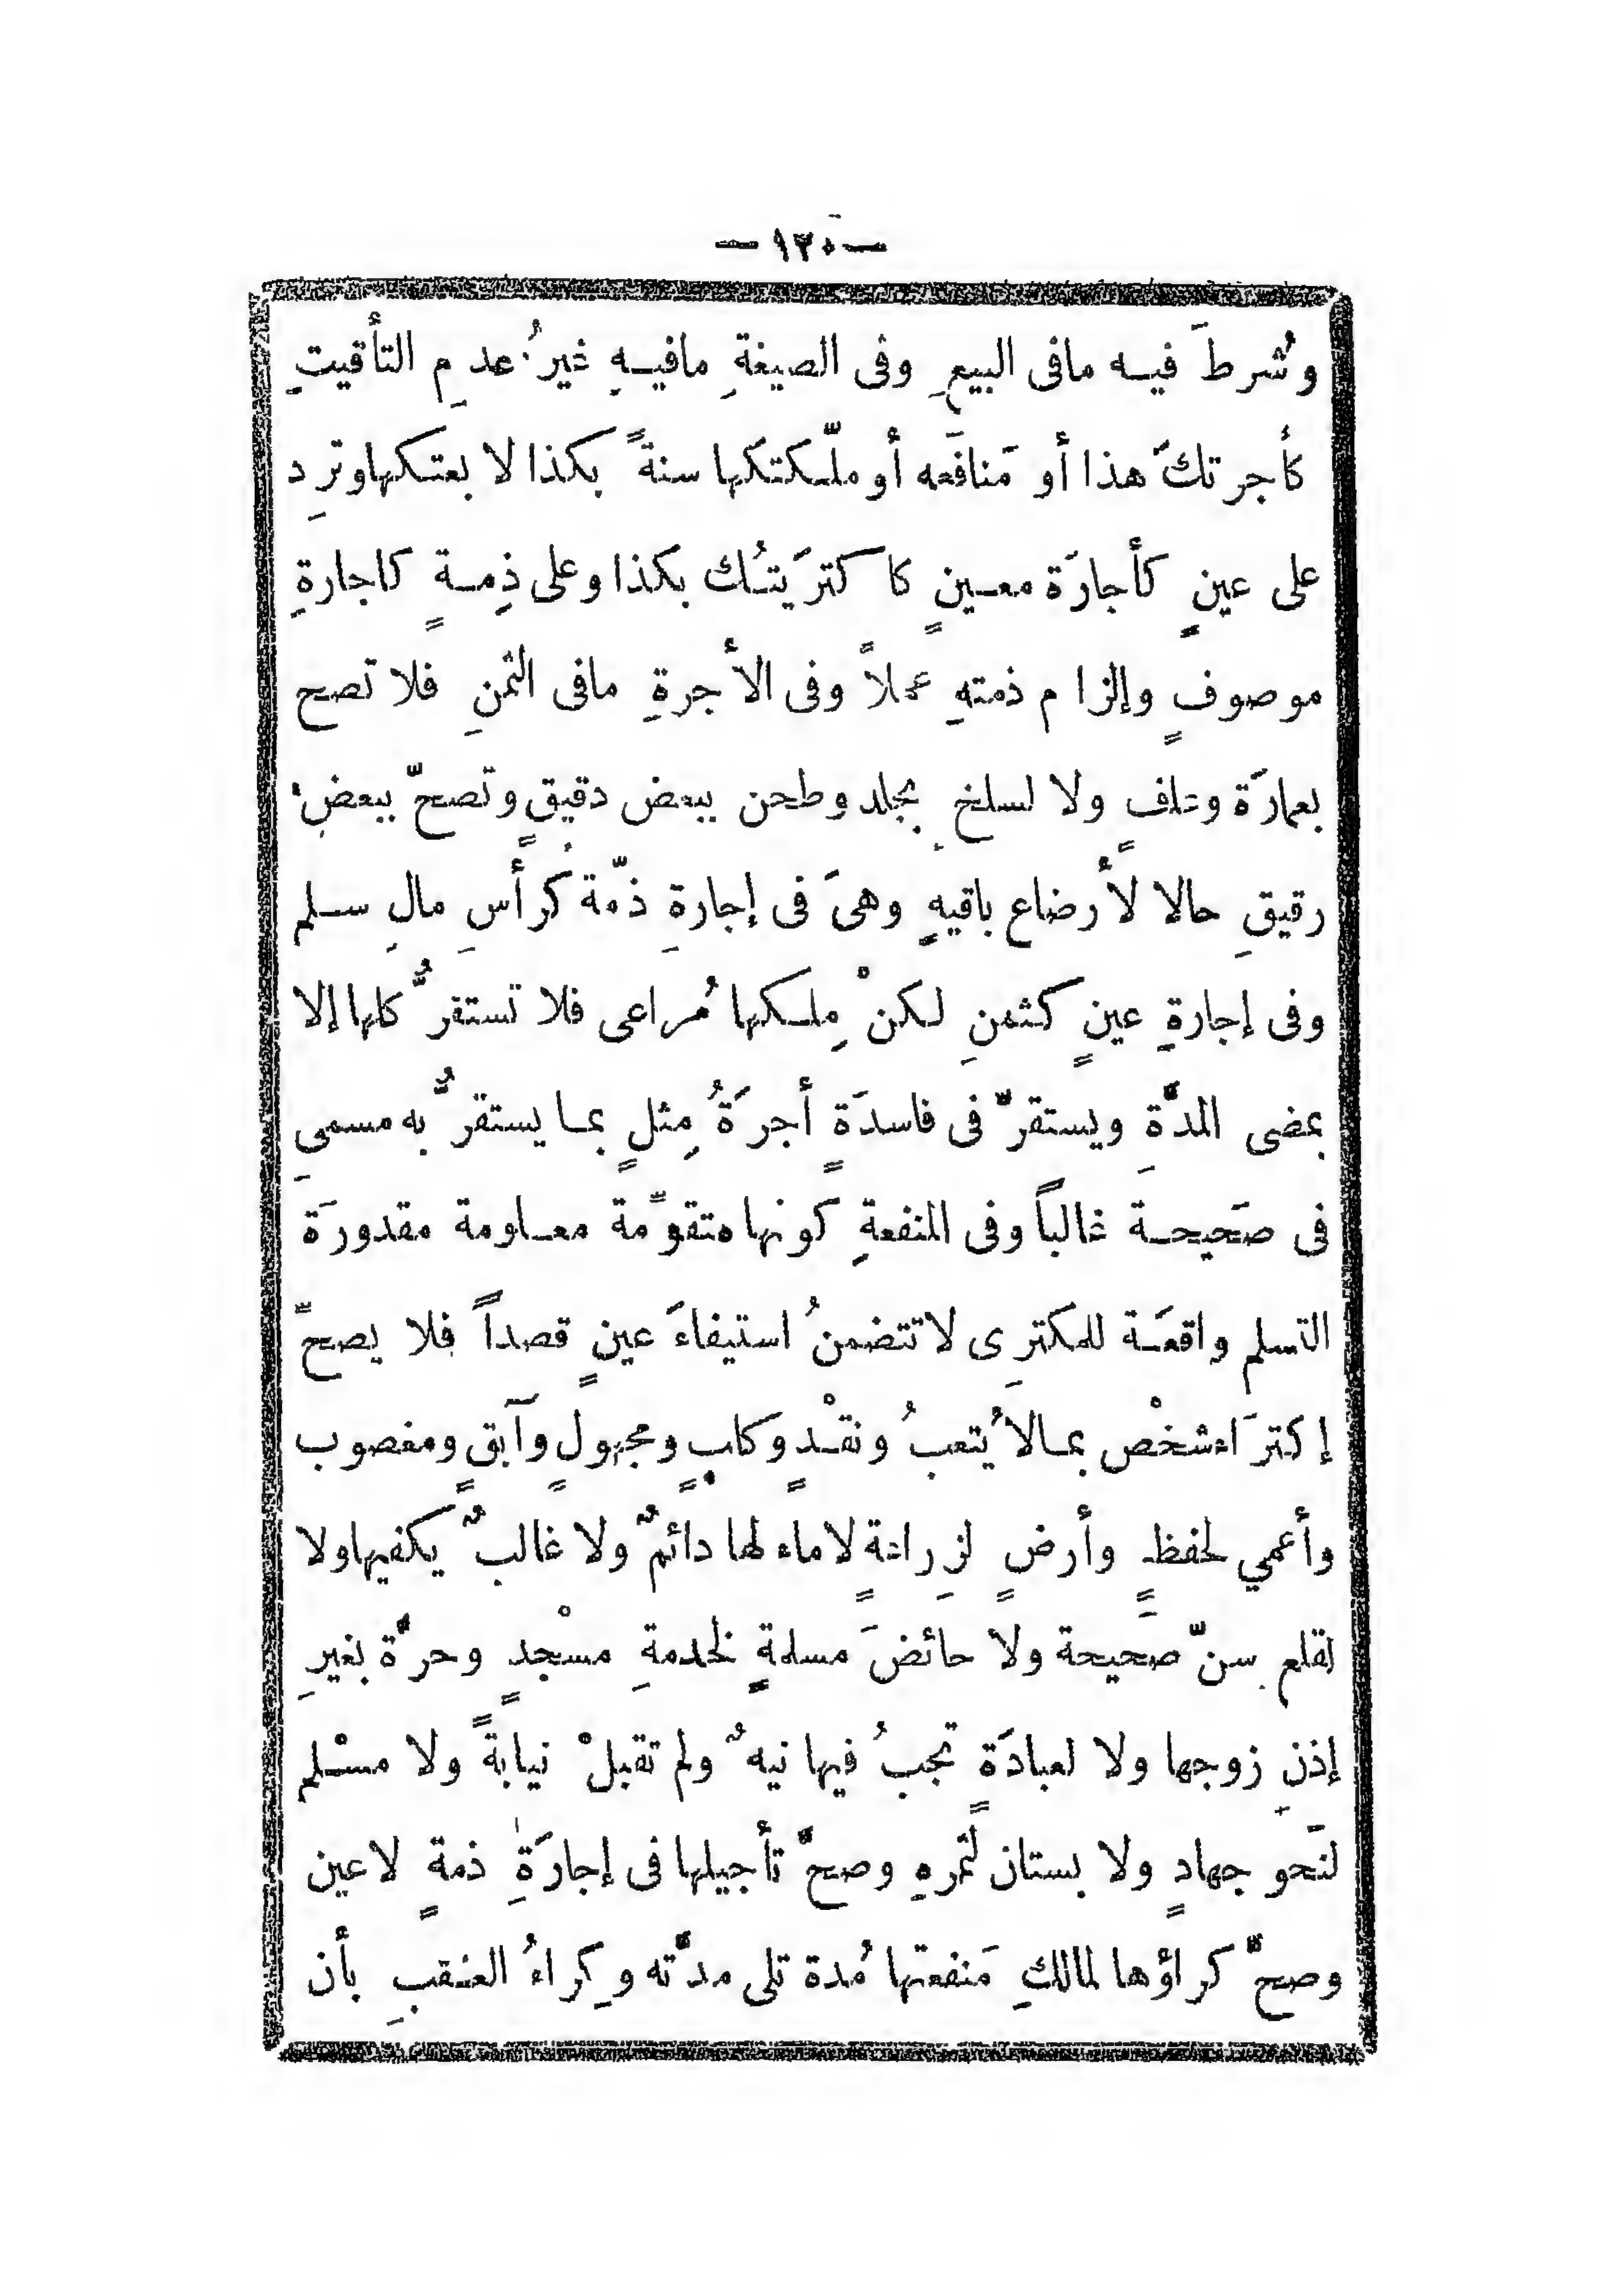 — ١٣٥ —
وشُرطَ فيـه مافى البيعِ وفى الصيغةِ مافيـهِ غيرُ عدمِ التأقيتِ
كأجرتكَ هذا أو مَنافعَه أو ملّـكتكها سنةً بكذا لا بعتـكها وتَرِد
على عينٍ كأجارَة معـينٍ كاكتَريتُـك بكذا وعلى ذِمـةٍ كاجارةِ
موصوفٍ وإلزام ذمتهِ عملاً وفى الأجرةِ مافى الثمنِ فلا تصح
بعمارَة وعلفٍ ولا لسلخ بِجلد وطحن ببعض دقيقٍ وتصحّ ببعضِ
رقيقِ حالا لأرضاع باقيهِ وهىَ فى إجارةِ ذمّة كرأسِ مالِ سـلم
وفى إجارةِ عينٍ كثمنِ لـكنْ مِلـكها مُراعى فلا تستقرُّ كلها إلا
بمضى المدَّةِ ويستقرّ فى فاسدَةٍ أجرَةُ مِثلٍ بمـا يستقرُّ به مسمىِ
فى صَحيحـة غالباً وفى المنفعةِ كونها متقوّمة معـلومة مقدورَة
التسلم واقعَـة للمكترِى لاتتضمنُ استيفاءَ عينٍ قصداً فلا يصحّ
إكترَاءشخْص بمـالاُيتعبُ ونقْـدٍ وكلبٍ ومجهولٍ وآبقٍ ومغصوب
وأعمي لحفظـٍ وأرضٍ لزِراعةٍ لاماء لها دائمٌ ولا غالبٌ يكفيها ولا
لقلع سِنّ صَحيحة ولا حائضَ مسلمةٍ لخدمةِ مسْجدٍ وحرَّة بغيرِ
إذنِ زوجها ولا لعبادَةٍ تجبُ فيها نيهٌ ولم تقبلْ نيابةً ولا مسْـلم
لنَحو جهادٍ ولا بستان لثمرهِ وصحَّ تأجيلها فى إجارَةِ ذمةٍ لاعين
وصحَّ كراؤها لمالكِ مَنفعتها مُدة تلى مدَّته وكِراءُ العـقبِ بأن